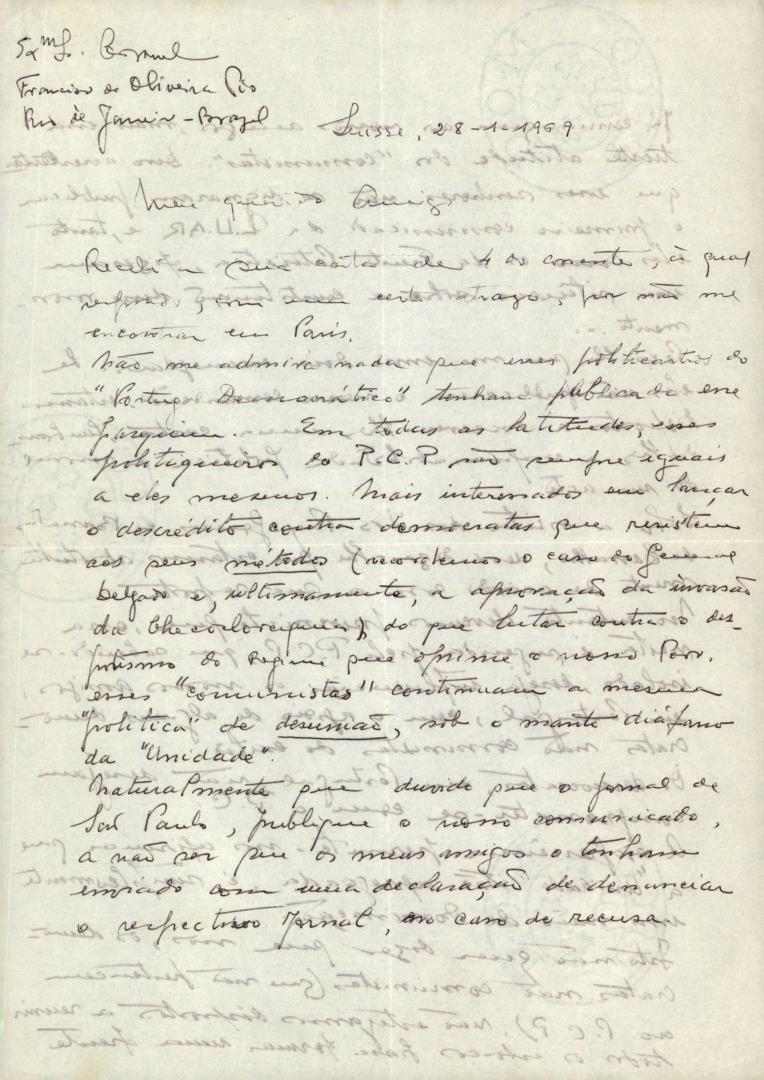 Exmº Sr. Coronel
Francisco de Oliveira Pio
Rio de Janeiro - Brazil
Suisse, 28-1-1969
Meu querido Amigo
Recebi a sua carta de 4 do corrente, à qual
respondo, com um certo atrazo, por não me
encontrar em Paris.
Não me admira nada que esses politicastros do
"Portugal Democrático" tenham publicado esse
pasquim. Em todas as latitudes, esses
politiqueiros do P.C.P são sempre iguais
a eles mesmos. Mais interessados em lançar
o descrédito contra democratas que resistem
aos seus métodos (recordemos o caso do General
Delgado e, ultimamente, a aprovação da invasão
da Checoslovaquia), do que lutar contra o des-
potismo do Regime que oprime o nosso Povo,
esses "comunistas" continuam a mesma
"politica" de desunião, sob o manto diáfano
da "Unidade".
Naturalmente que duvido que o Jornal de
São Paulo, publique o nosso comunicado,
a não ser que os meus amigos o tenham
enviado com uma declaração de denunciar
o respectivo Jornal, no caso de recusa.